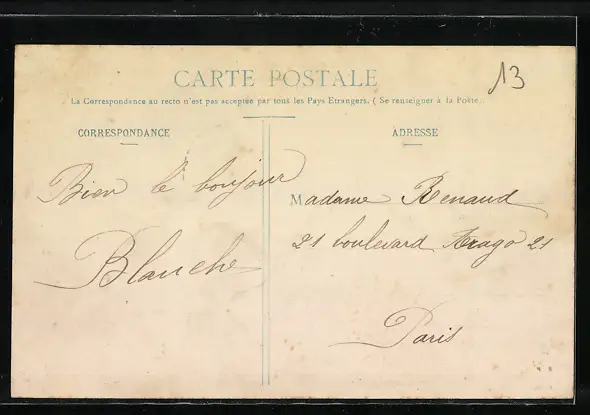 13
CARTE POSTALE
La Correspondance au recto n'est pas acceptée par tous les Pays Etrangers. ( Se renseigner à la Poste.
CORRESPONDANCE
Bien le boujour
Blanche
ADRESSE
Madame Renaud
21 boulevard Arago 21
Paris